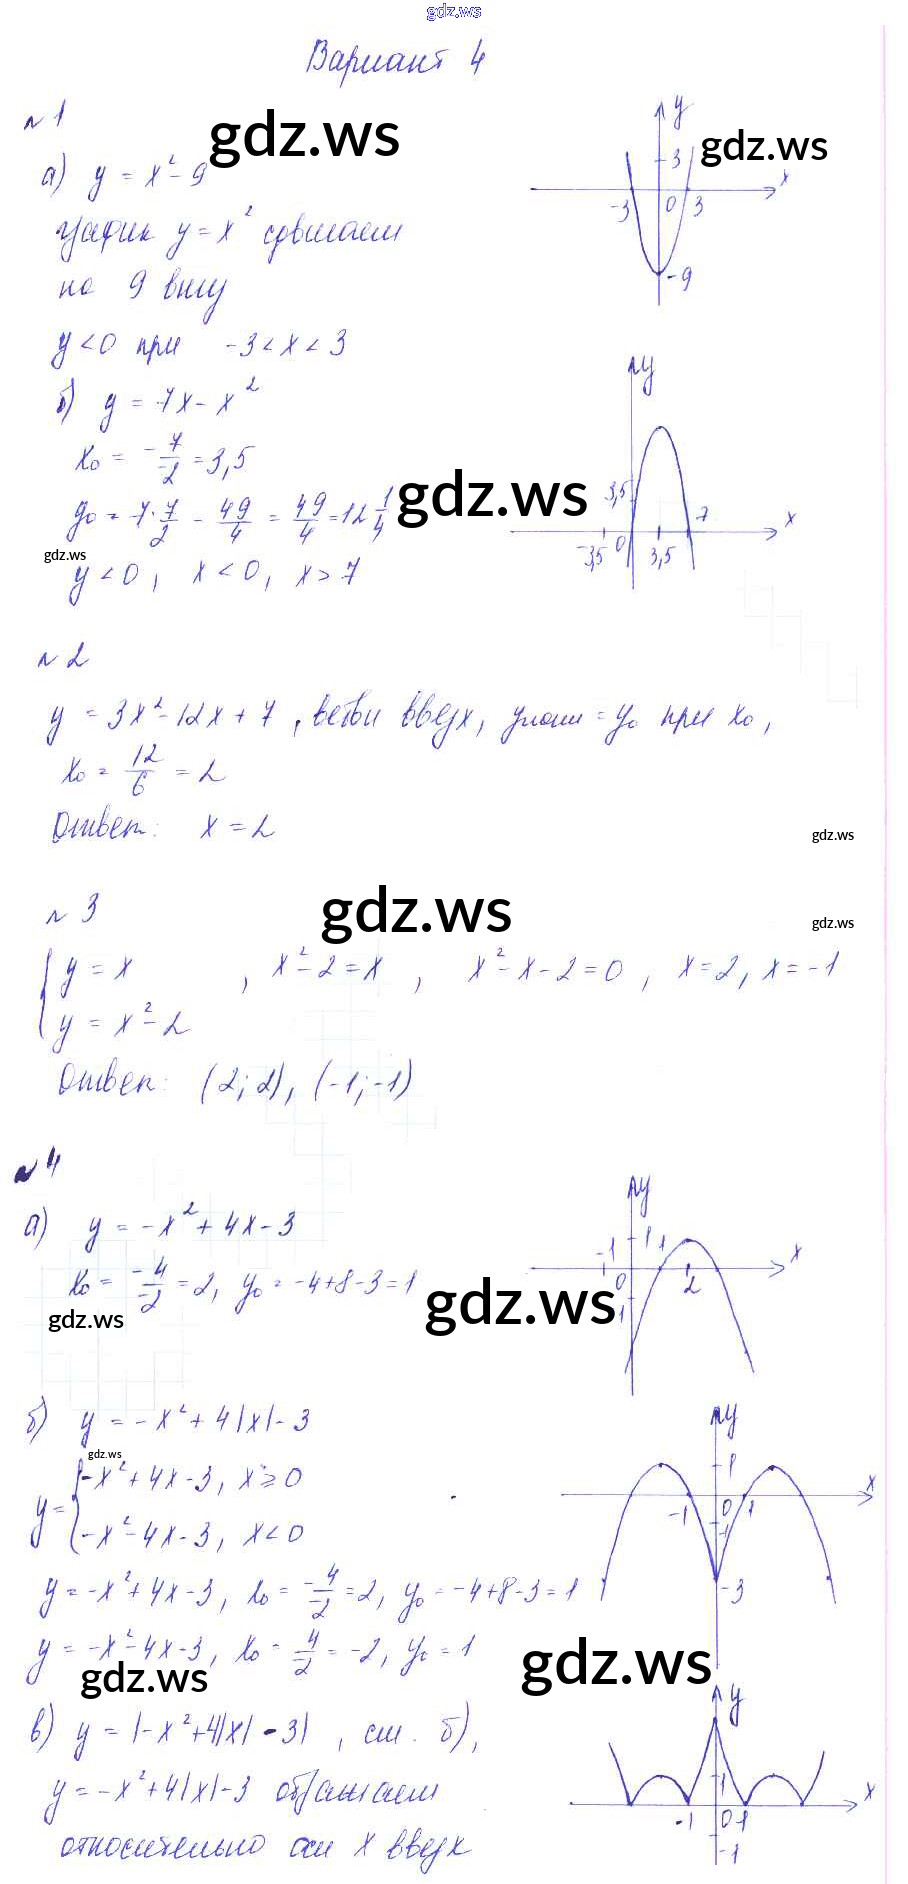 gdz.ws
Вариант 4
№1
gdz.ws
gdz.ws
а) y = x² - 9
график y = x² сдвигаем
на 9 вниз
y < 0 при -3 < x < 3
y
3
x
-3 0 3
-9
б) y = 7x - x²
x₀ = -7/-2 = 3,5
y₀ = 7·7/2 - 49/4 = 49/4 = 12 1/4
gdz.ws
gdz.ws
y < 0, x < 0, x > 7
y
3,5
7 x
-3,5 0 3,5
№2
y = 3x² - 12x + 7, ветви вверх, yнаим = y₀ при x₀,
x₀ = 12/6 = 2
Ответ: x = 2
gdz.ws
№3
gdz.ws
gdz.ws
{ y = x
y = x² - 2 , x² - 2 = x, x² - x - 2 = 0, x = 2, x = -1
Ответ: (2; 2), (-1; -1)
№4
а) y = -x² + 4x - 3
x₀ = -4/-2 = 2, y₀ = -4+8-3 = 1
gdz.ws
gdz.ws
y
-1 1 1 x
0 2
-1
б) y = -x² + 4|x| - 3
gdz.ws
y = { -x² + 4x - 3, x ⩾ 0
-x² - 4x - 3, x < 0
y = -x² + 4x - 3, x₀ = -4/-2 = 2, y₀ = -4+8-3 = 1
y = -x² - 4x - 3, x₀ = 4/-2 = -2, y₀ = 1
gdz.ws
gdz.ws
y
1
x
-1 0 1
-1
-3
в) y = |-x² + 4|x| - 3|, см. б),
y = -x² + 4|x| - 3 отражаем
относительно оси x вверх
y
1
x
-1 0 1
-1